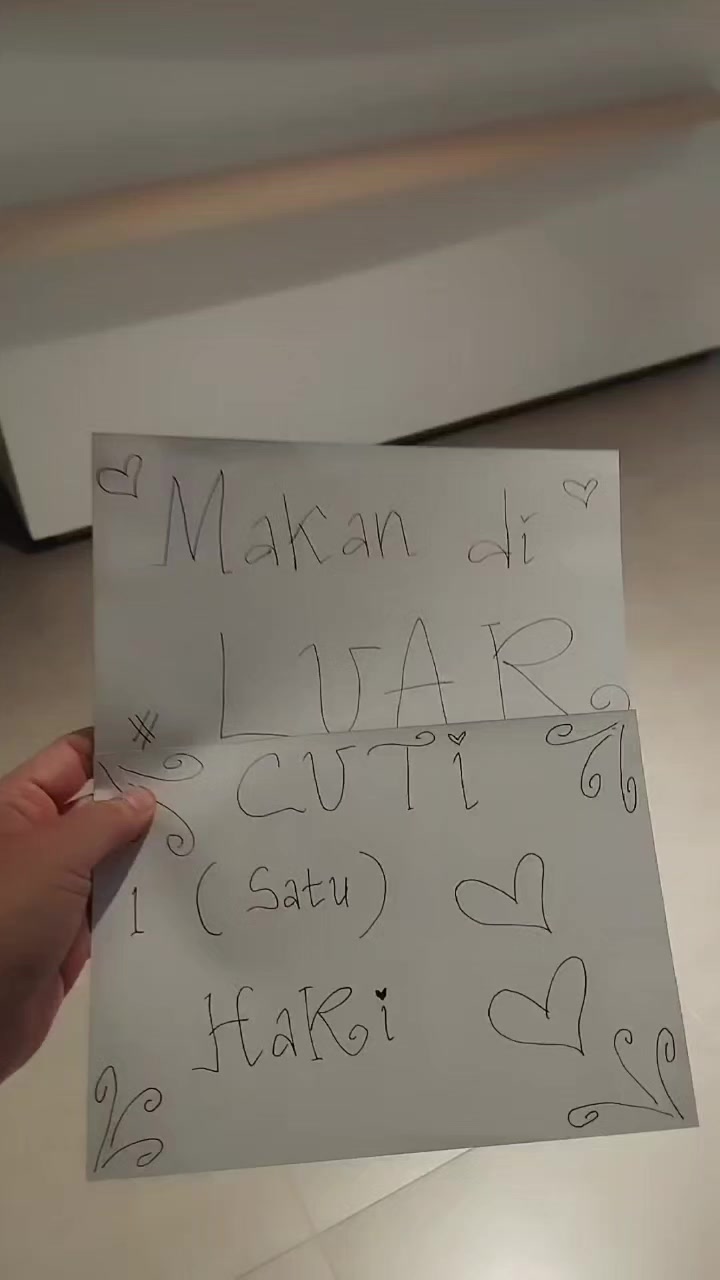 Makan di
LUAR
#
CUTi
1 (Satu)
HaRi